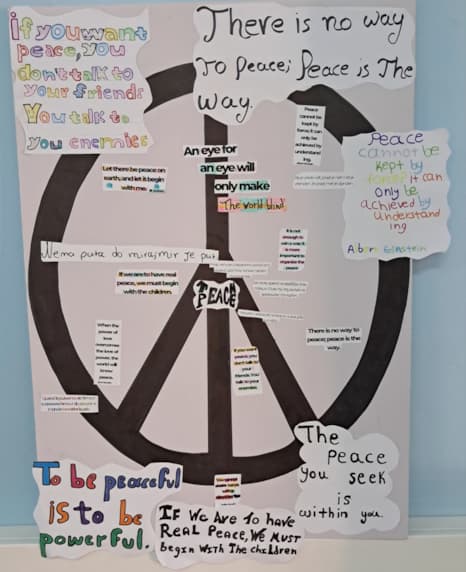 If you want
peace, you
don't talk to
your friends
You talk to
you enemies
There is no way
To Peace; Peace is The
Way.
Peace
cannot be
kept by
force; it can
only be
achieved by
understand
ing.
Peace
cannot be
kept by
force it can
only be
achieved by
understand
ing
Albert Einstein
An eye for
an eye will
only make
The world blind
Let there be peace on
earth, and let it begin
with me.
It is not
enough to
win a war; it
is more
important to
organize the
peace
Nema puta do mira; mir je put
If we are to have real
peace, we must begin
with the children.
PEACE
There is no way to
peace; peace is the
way.
When the
power of
love
overcomes
the love of
power, the
world will
know peace.
If you want
peace, you
don't talk to
your
friends. You
talk to your
enemies
The
Peace
you seek
is
within you.
To be peaceful
is to be
powerful.
IF We Are To have
Real Peace, We Must
begin With The Children